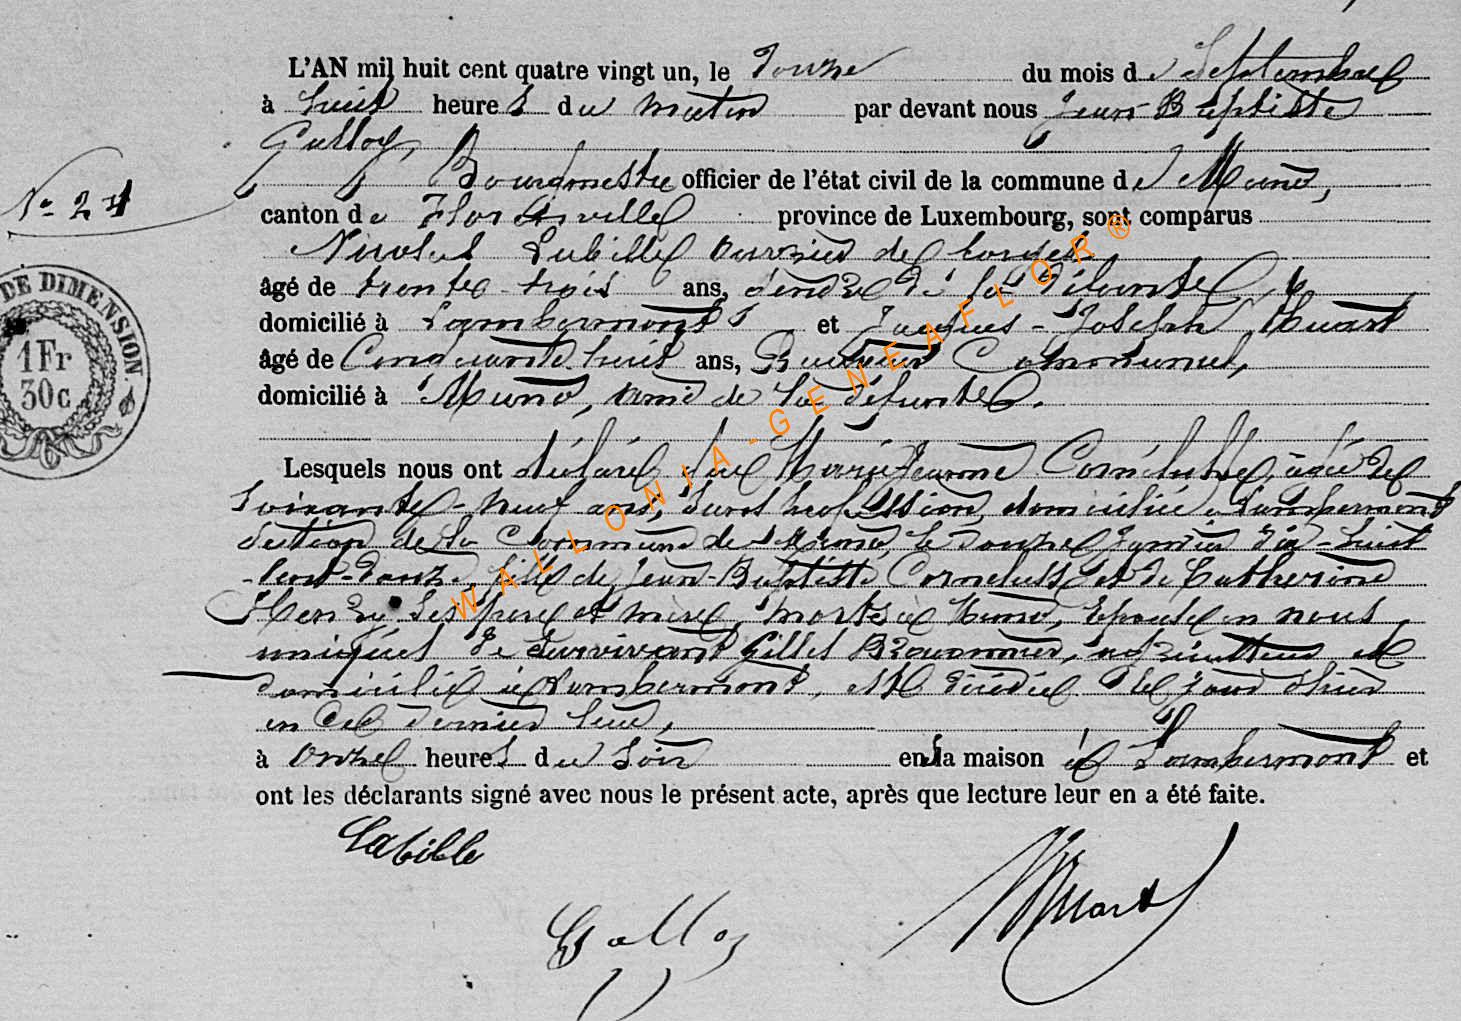 L'AN mil huit cent quatre vingt un, le Douze du mois de Septembre
à huit heures du matin par devant nous Jean Baptiste
Galloy,
Bourgmestre officier de l'état civil de la commune de Muno,
N° 24
canton de Florenville province de Luxembourg, sont comparus
Nicolas Labille ouvrier de forges
âgé de trente-trois ans, gendre de la défunte
domicilié à Lambermont et Jacques-Joseph Huart
âgé de Cinquante huit ans, Receveur Communal,
domicilié à Muno, ami de la défunte.
Lesquels nous ont déclaré que Marie Jeanne âgée de
soixante-neuf ans, sans profession, domiciliée à Lambermont
section de la Commune de Muno, le douze Janvier dix-huit
-cent-douze, fille de Jean-Baptiste et de Catherine
Henry ses père et mère, morts à Muno, épouse en noces
uniques de survivant Gilles cultivateur et
domicilié à Lambermont, est décédée le jour d'hier
en ce dernier lieu,
à onze heures du soir en sa maison à Lambermont et
ont les déclarants signé avec nous le présent acte, après que lecture leur en a été faite.
Labille
Galloy
Huart
DE DIMENSION
1Fr
30c
WALLONIA-GENEAFLOR®